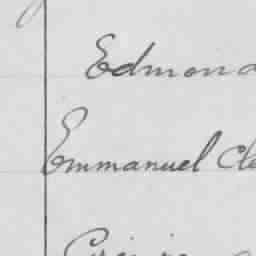 Edmond
Emmanuel Cle